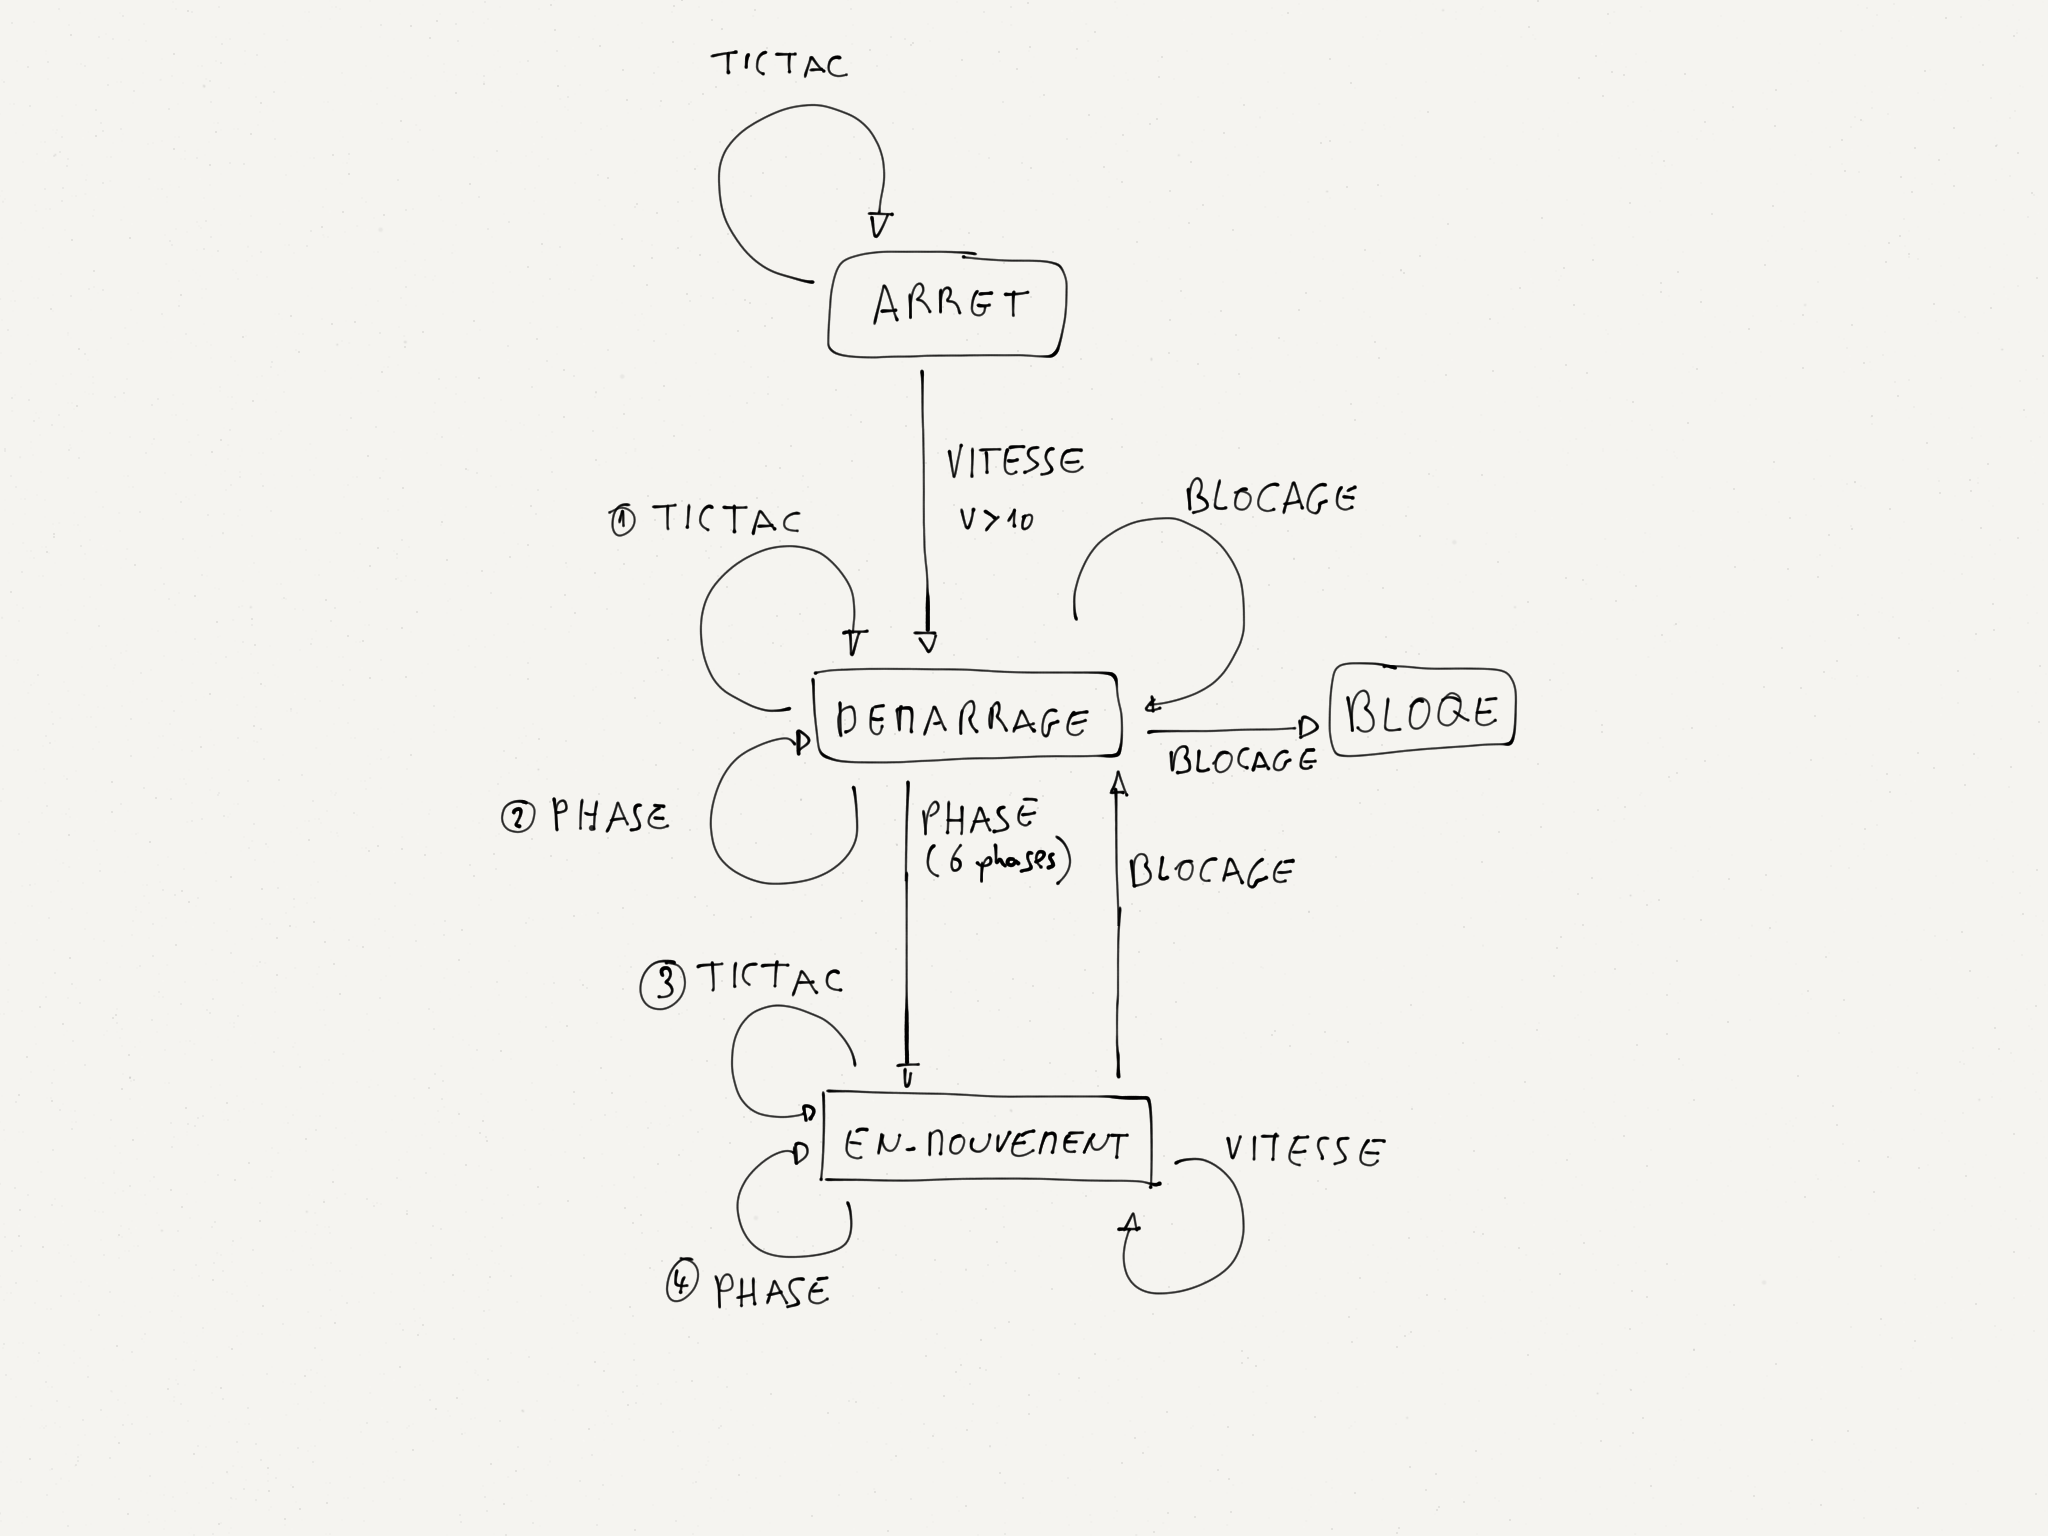 TICTAC
ARRET
VITESSE
V>10
BLOCAGE
① TICTAC
DEMARRAGE
BLOQE
BLOCAGE
② PHASE
PHASE
(6 phases)
BLOCAGE
③ TICTAC
EN-MOUVEMENT
VITESSE
④ PHASE